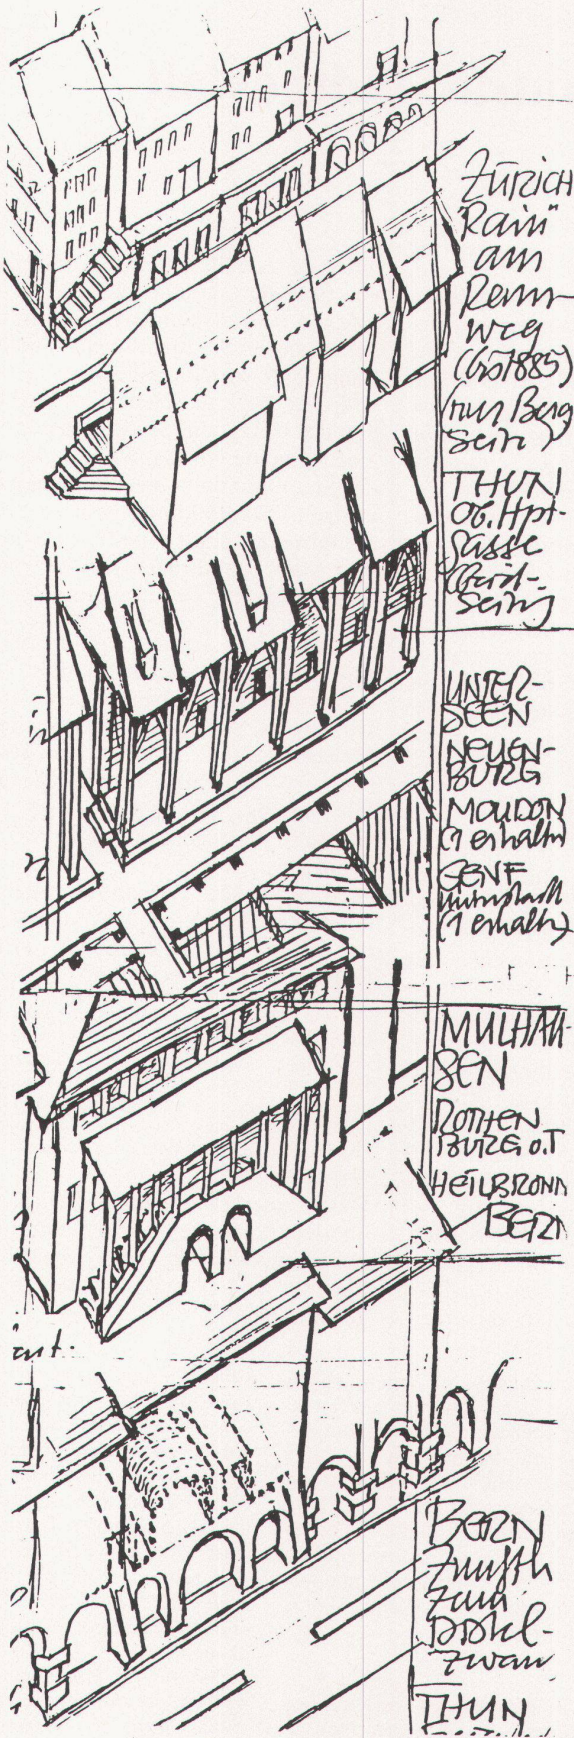 ZÜRICH
"Rain"
am
Renn-
weg
(bis 1885)
(nur Berg
seite)
THUN
Ob. Hpt-
Gasse
UNTER-
SEEN
NEUEN-
BURG
MOUDON
(1 erhalten)
GENF
(1 erhalten)
MULHAU-
SEN
ROTHEN
BURG o.T
HEILBRONN
BERN
BERN
Zunfth
zum
Distel-
zwan
THUN